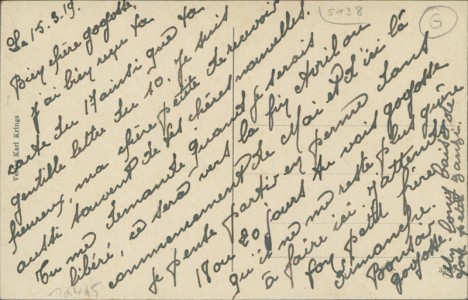 Le 15.3.19.
Bien chère gogosse,
J'ai bien reçu ta
carte du 17 ainsi que ta
gentille lettre du 10. Je suis
heureux, ma chère petite de recevoir
aussi souvent de tes chères nouvelles.
Tu me demande quand je serais
libéré, ce sera vers la fin Avril ou
commencement de Mai et d'ici là
je pense partir en perme dans
18 ou 20 jours. Tu vois gogosse
qu'il ne me reste plus guère
à faire ici. J'attends
ton petit frère
Dimanche.
Bonjour
gogosse
bons baisers de
ton petit
Verlag Karl Krings
5938
G